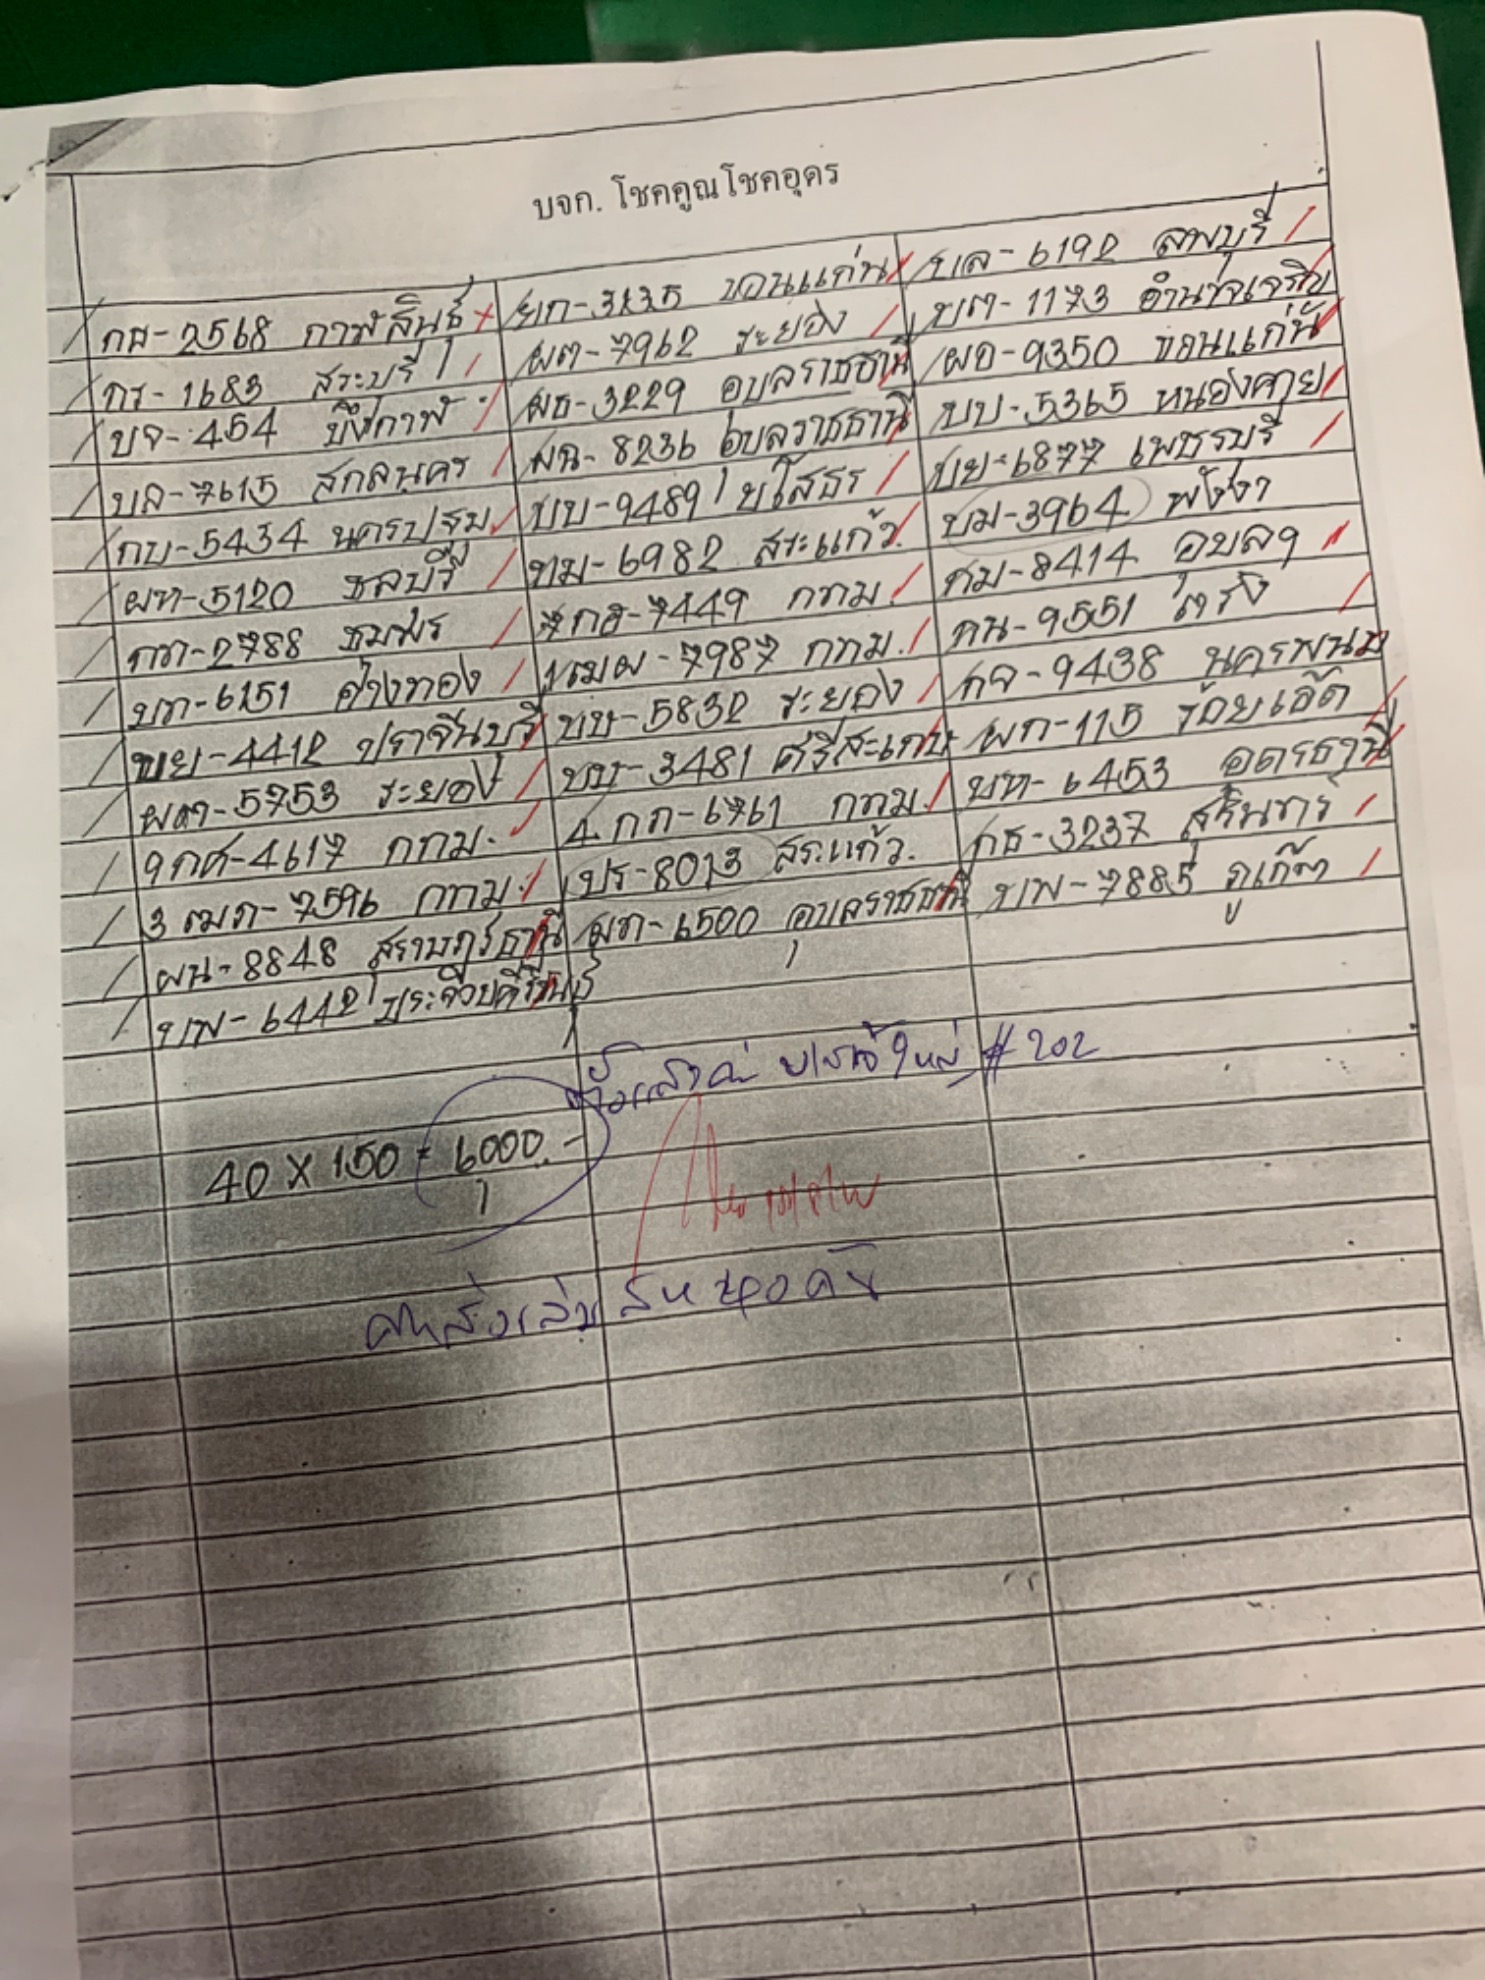 บจก. โชคคูณโชคอุดร
กส-2568 กาฬสินธุ์
กร-1683 สระบุรี
บจ-454 บึงกาฬ
บล-7615 สกลนคร
กบ-5434 นครปฐม
ผท-5120 ชลบุรี
กก-2788 ชุมพร
บก-6151 อ่างทอง
ขย-4412 ปราจีนบุรี
ผต-5753 ระยอง
9กศ-4617 กทม.
3ฒก-7596 กทม.
ผน-8848 สุราษฎร์ธานี
บพ-6442 ประจวบคีรีขันธ์
ยก-3235 ขอนแก่น
ผต-7962 ระยอง
ผธ-3229 อุบลราชธานี
ผฉ-8236 อุบลราชธานี
บบ-9489 ยโสธร
ทม-6982 สระแก้ว
7กฮ-7449 กทม.
1ฒผ-7987 กทม.
ขษ-5832 ระยอง
บบ-3481 ศรีสะเกษ
4กก-6761 กทม.
ปร-8013 สระแก้ว.
ผก-6500 อุบลราชธานี
บล-6192 ลพบุรี
บต-1173 อำนาจเจริญ
ผอ-9350 ขอนแก่น
บบ-5365 หนองคาย
บย-6877 เพชรบุรี
บม-3964 พังงา
กม-8414 อุบลฯ
กน-9551 ตรัง
กจ-9438 นครพนม
ผก-115 ร้อยเอ็ด
บท-6453 อุดรธานี
กธ-3237 สุรินทร์
บพ-7885 ภูเก็ต
#202
40 X 150 = 6000.-